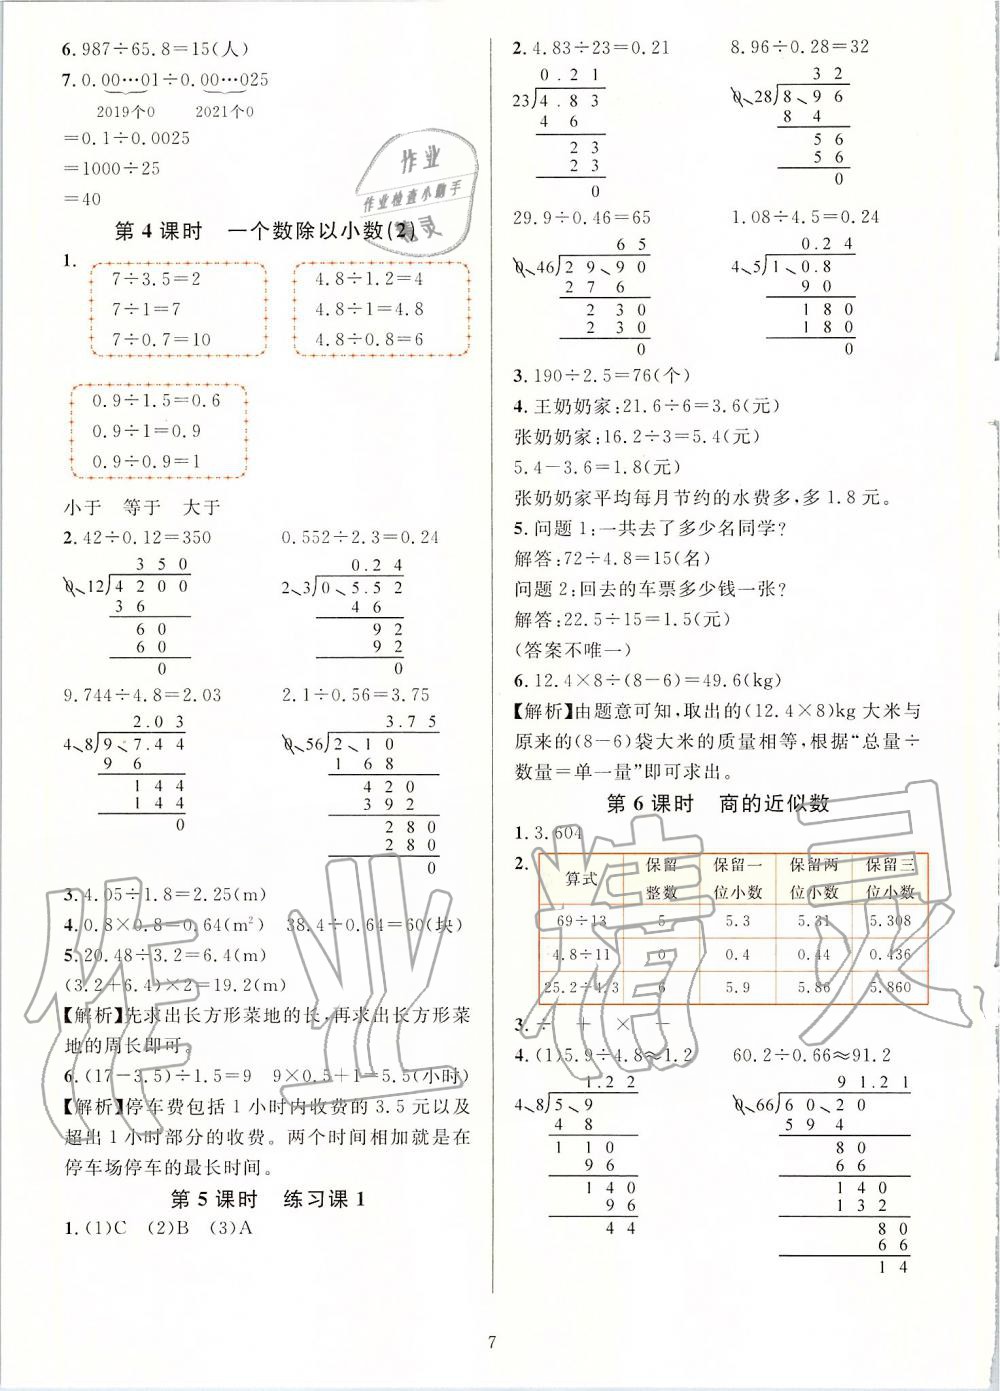 6. 987÷65.8=15(人)
7. 0.00…01÷0.00…025
2019个0 2021个0
=0.1÷0.0025
=1000÷25
=40
第 4 课时 一个数除以小数(2)
1.
7÷3.5=2
7÷1=7
7÷0.7=10
4.8÷1.2=4
4.8÷1=4.8
4.8÷0.8=6
0.9÷1.5=0.6
0.9÷1=0.9
0.9÷0.9=1
小于 等于 大于
2. 42÷0.12=350 0.552÷2.3=0.24
350
0.12 4200
36
60
60
0
0.24
2.3 0.5.52
46
92
92
0
9.744÷4.8=2.03 2.1÷0.56=3.75
2.03
4.8 9.7.44
96
144
144
0
3.75
0.56 210
168
420
392
280
280
0
3. 4.05÷1.8=2.25(m)
4. 0.8×0.8=0.64(m²) 38.4÷0.64=60(块)
5. 20.48÷3.2=6.4(m)
(3.2+6.4)×2=19.2(m)
【解析】先求出长方形菜地的长,再求出长方形菜
地的周长即可。
6. (17-3.5)÷1.5=9 9×0.5+1=5.5(小时)
【解析】停车费包括 1 小时内收费的 3.5 元以及
超出 1 小时部分的收费。两个时间相加就是在
停车场停车的最长时间。
第 5 课时 练习课 1
1. (1)C (2)B (3)A
2. 4.83÷23=0.21 8.96÷0.28=32
0.21
23 4.83
46
23
23
0
32
0.28 8.96
84
56
56
0
29.9÷0.46=65 1.08÷4.5=0.24
65
0.46 29.90
276
230
230
0
0.24
4.5 1.0.8
90
180
180
0
3. 190÷2.5=76(个)
4. 王奶奶家:21.6÷6=3.6(元)
张奶奶家:16.2÷3=5.4(元)
5.4-3.6=1.8(元)
张奶奶家平均每月节约的水费多,多 1.8 元。
5. 问题 1:一共去了多少名同学?
解答:72÷4.8=15(名)
问题 2:回去的车票多少钱一张?
解答:22.5÷15=1.5(元)
(答案不唯一)
6. 12.4×8÷(8-6)=49.6(kg)
【解析】由题意可知,取出的(12.4×8)kg 大米与
原来的(8-6)袋大米的质量相等,根据“总量÷
数量=单一量”即可求出。
第 6 课时 商的近似数
1. 3.604
2.
算式 保留整数 保留一位小数 保留两位小数 保留三位小数
69÷13 5 5.3 5.31 5.308
4.8÷11 0 0.4 0.44 0.436
25.2÷4.3 6 5.9 5.86 5.860
3. ÷ + × -
4. (1)5.9÷4.8≈1.2 60.2÷0.66≈91.2
1.22
4.8 5.9
48
110
96
140
96
44
91.21
0.66 6020
594
80
66
140
132
80
66
14
7
作业
作业检查小助手
精灵
作业精灵